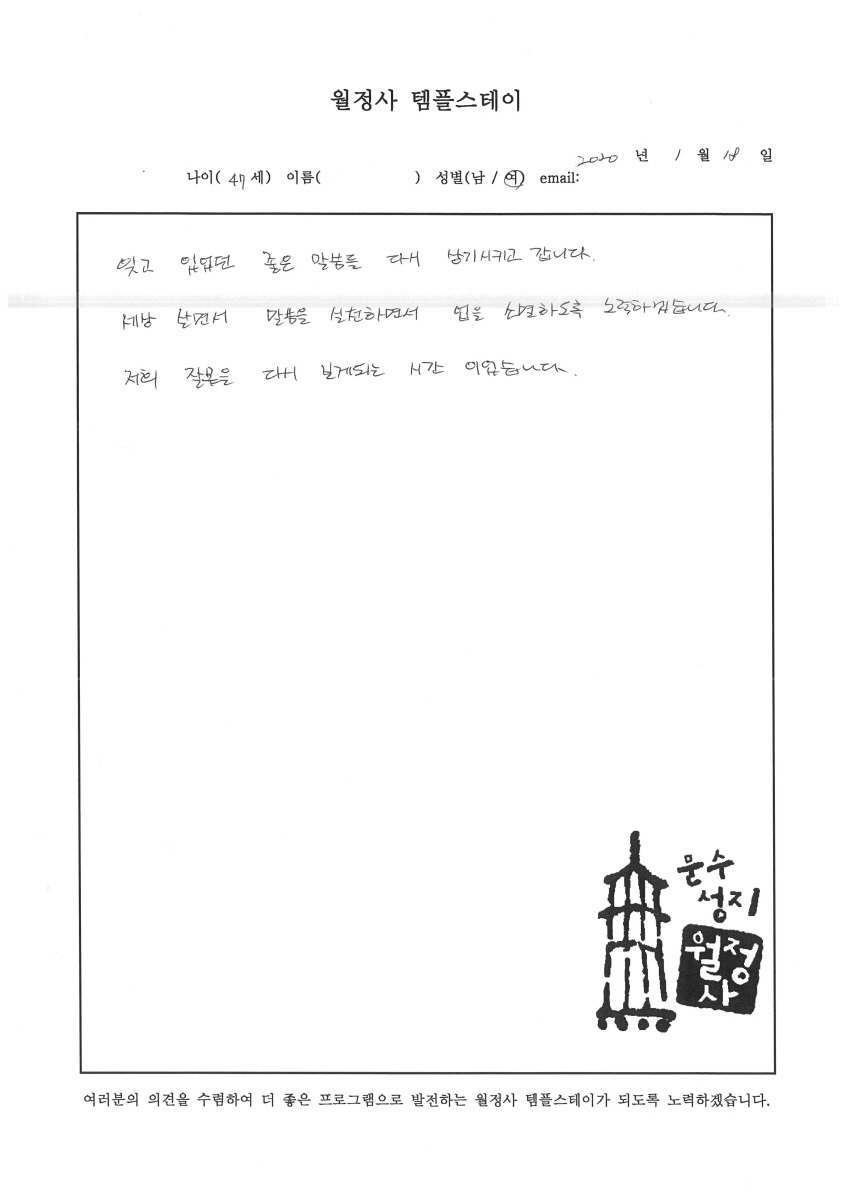 월정사 템플스테이
2020 년 1 월 18 일
나이( 47 세) 이름( ) 성별(남 / 여) email:
잊고 있었던 좋은 말씀들 다시 상기시키고 갑니다.
세상 살면서 말씀을 실천하면서 업을 소멸하도록 노력하겠습니다.
저희 잘못을 다시 보게되는 시간 이었습니다.
문수
성지
월정
사
여러분의 의견을 수렴하여 더 좋은 프로그램으로 발전하는 월정사 템플스테이가 되도록 노력하겠습니다.